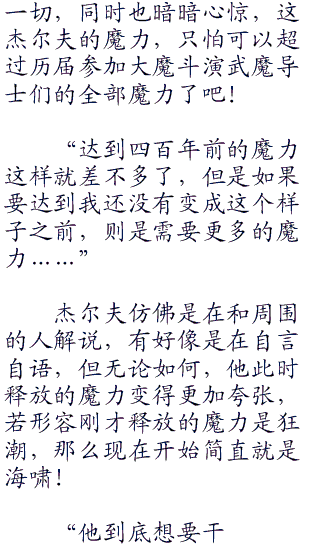 一切，同时也暗暗心惊，这
杰尔夫的魔力，只怕可以超
过历届参加大魔斗演武魔导
士们的全部魔力了吧！
“达到四百年前的魔力
这样就差不多了，但是如果
要达到我还没有变成这个样
子之前，则是需要更多的魔
力……”
杰尔夫仿佛是在和周围
的人解说，有好像是在自言
自语，但无论如何，他此时
释放的魔力变得更加夸张，
若形容刚才释放的魔力是狂
潮，那么现在开始简直就是
海啸！
“他到底想要干